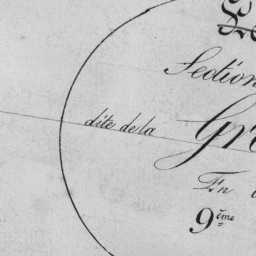 Section
dite de la Gr
En
9ème